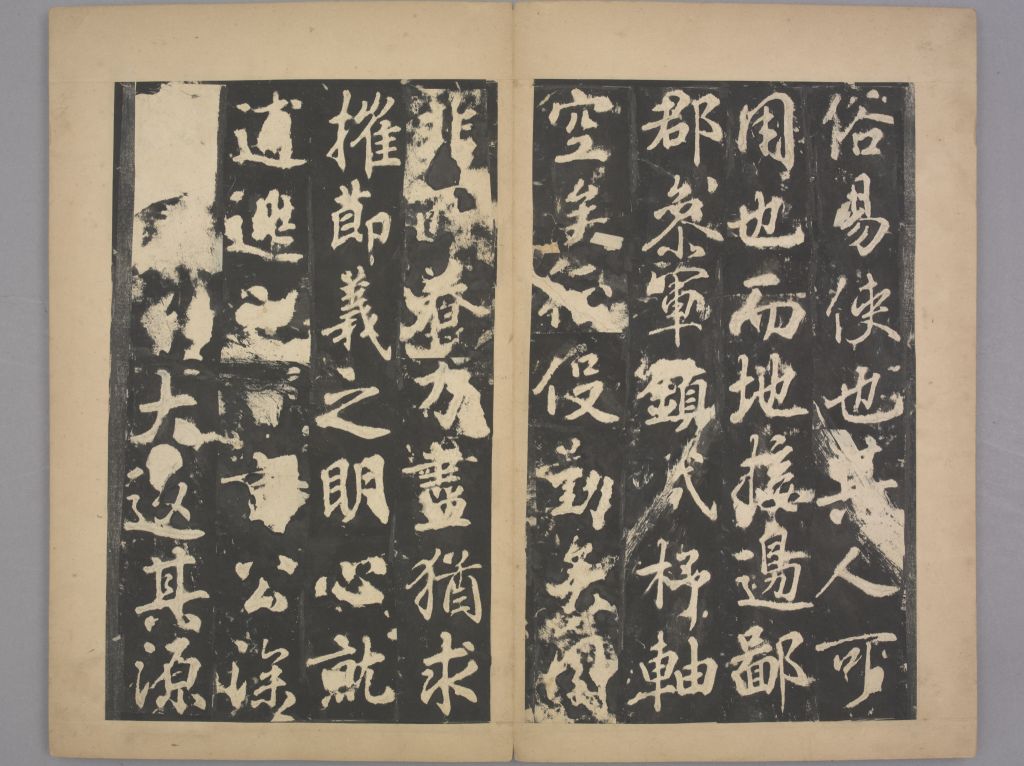 俗易使也其人可
用也而地接邊鄙
郡叅軍鎮人杼軸
空矣行役勤矣
非力盡猶求
摧節義之明心就
逋逃之公深
大返其源